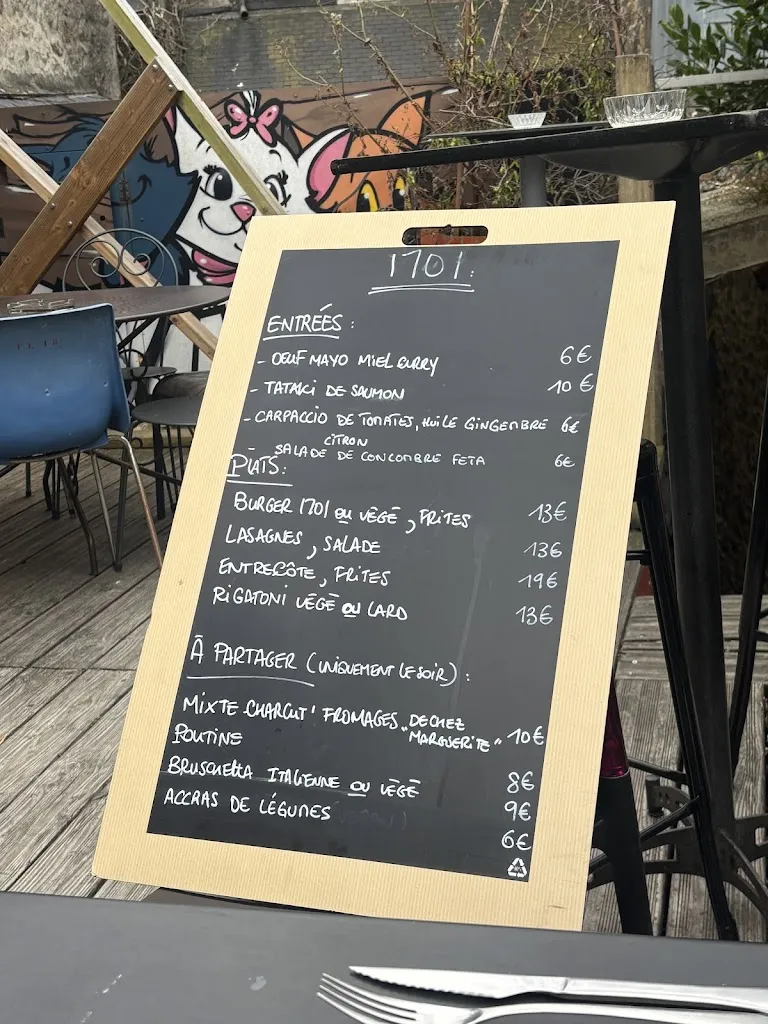 1701:
ENTRÉES :
- OEUF MAYO MIEL CURRY 6€
- TATAKI DE SAUMON 10€
- CARPACCIO DE TOMATES, HUILE GINGEMBRE 6€
CITRON
SALADE DE CONCOMBRE FETA 6€
PLATS:
BURGER 1701 ou VÉGÉ, FRITES 13€
LASAGNES, SALADE 13€
ENTRECÔTE, FRITES 19€
RIGATONI VÉGÉ ou LARD 13€
À PARTAGER (UNIQUEMENT LE SOIR) :
MIXTE CHARCUT' FROMAGES "DE CHEZ
MARGUERITE" 10€
POUTINE 8€
BRUSCHETTA ITALIENNE ou VÉGÉ 9€
ACCRAS DE LÉGUMES 6€